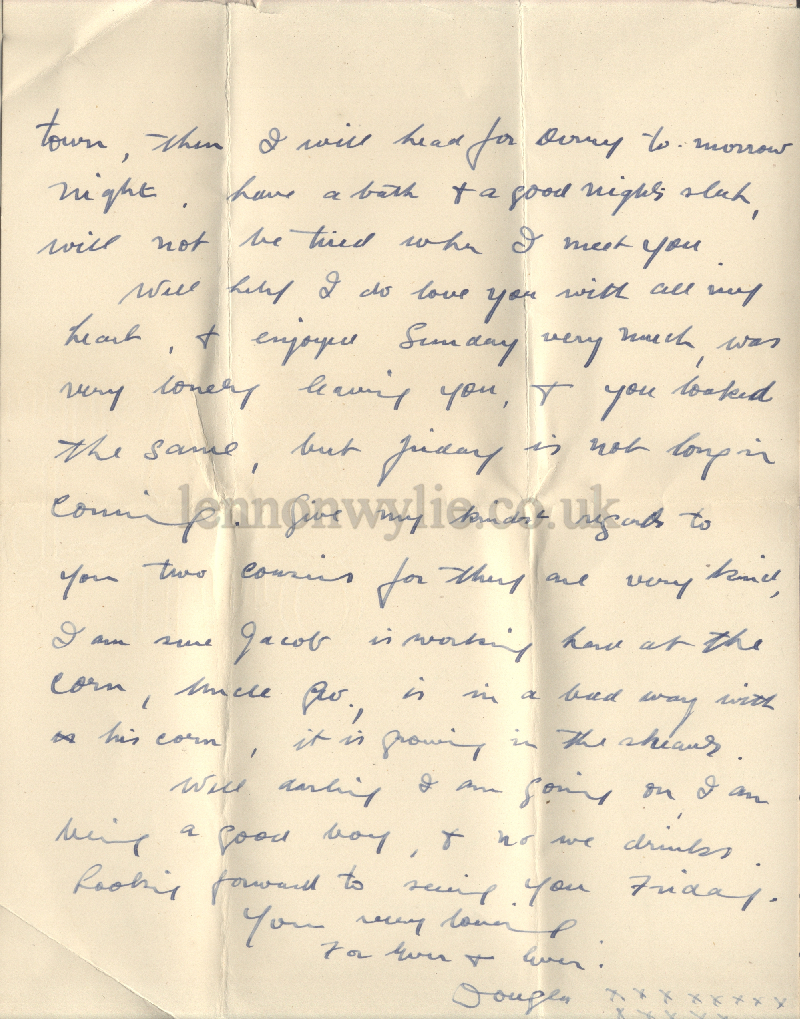 town, then I will head for Derry to-morrow
night, have a bath & a good nights sleep,
will not be tired when I meet you
Well I do love you with all my
heart, & enjoyed Sunday very much, was
very lonely leaving you, & you looked
the same, but Friday is not long in
coming. Give my kindest regards to
your two cousins for they are very kind,
I am sure Jacob is working hard at the
corn, Uncle Geo., is in a bad way with
his corn, it is growing in the sheaves.
Well darling I am going on, I am
being a good boy, & no wee drinks.
Looking forward to seeing you Friday.
Your very loving
For Ever & Ever.
Douglas xxxxxxxx
xxxxx
lennonwylie.co.uk